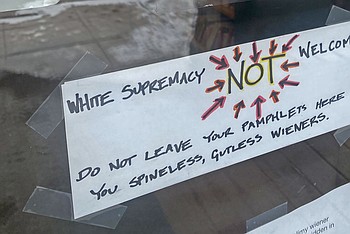 WHITE SUPREMACY NOT WELCOM
DO NOT LEAVE YOUR PAMPHLETS HERE
YOU SPINELESS, GUTLESS WIENERS.
limy wiener
idden in